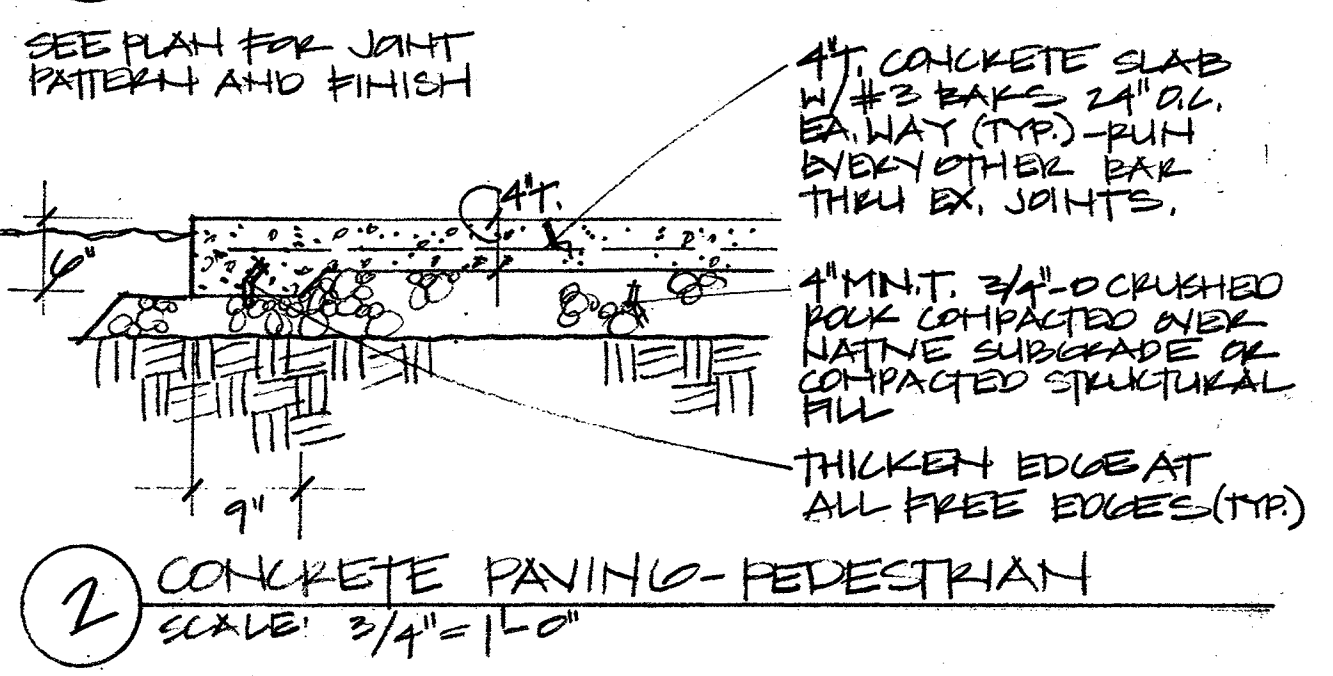 SEE PLAN FOR JOINT
PATTERN AND FINISH
4"T. CONCRETE SLAB
W/ #3 BARS 24" O.C.
EA. WAY (TYP.)-RUN
EVERY OTHER BAR
THRU EX. JOINTS.
4"T.
6"
4" MIN.T. 3/4"-0 CRUSHED
ROCK COMPACTED OVER
NATIVE SUBGRADE OR
COMPACTED STRUCTURAL
FILL
THICKEN EDGE AT
ALL FREE EDGES (TYP.)
9"
2 CONCRETE PAVING-PEDESTRIAN
SCALE: 3/4"=1'-0"